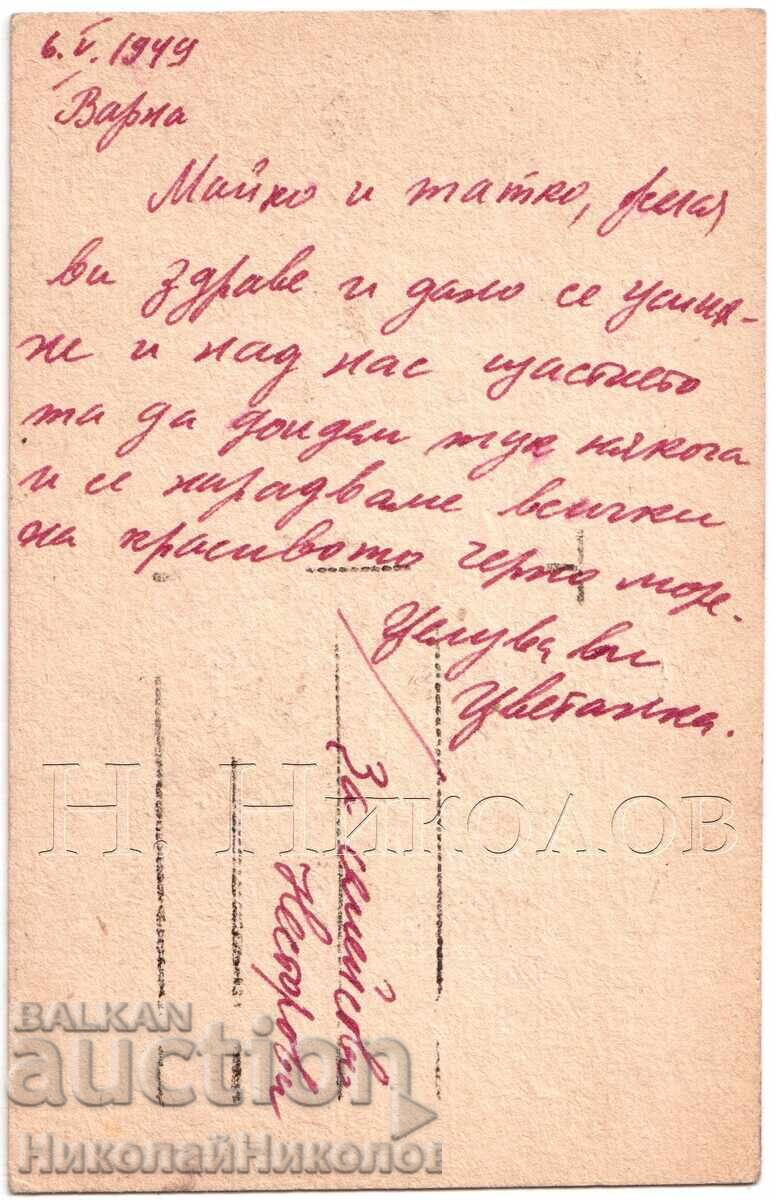 6.V.1949
Варна
Майко и татко, желая
ви здраве и дано се усмих-
не и над нас щастието
та да дойдем тук някога
и се нарадваме всички
на красивото Черно море.
Целува ви
Цветанка.
За
Н. Николов
BALKAN
auction
НиколайНиколов